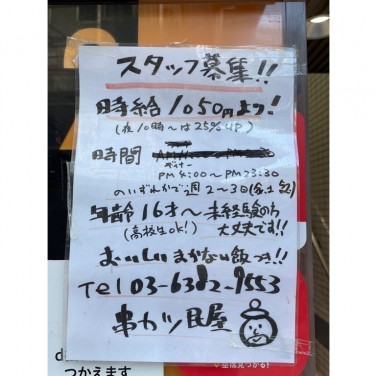 スタッフ募集!!
時給1050円より!
(夜10時〜は25%UP)
時間
ディナー
PM4:00〜PM23:30
のいずれかで週2〜3日
年齢16才〜未経験の方
(高校生ok!)大丈夫です!!
おいしいまかない飯つき!!
Tel 03-6382-9553
串カツ
つかえます